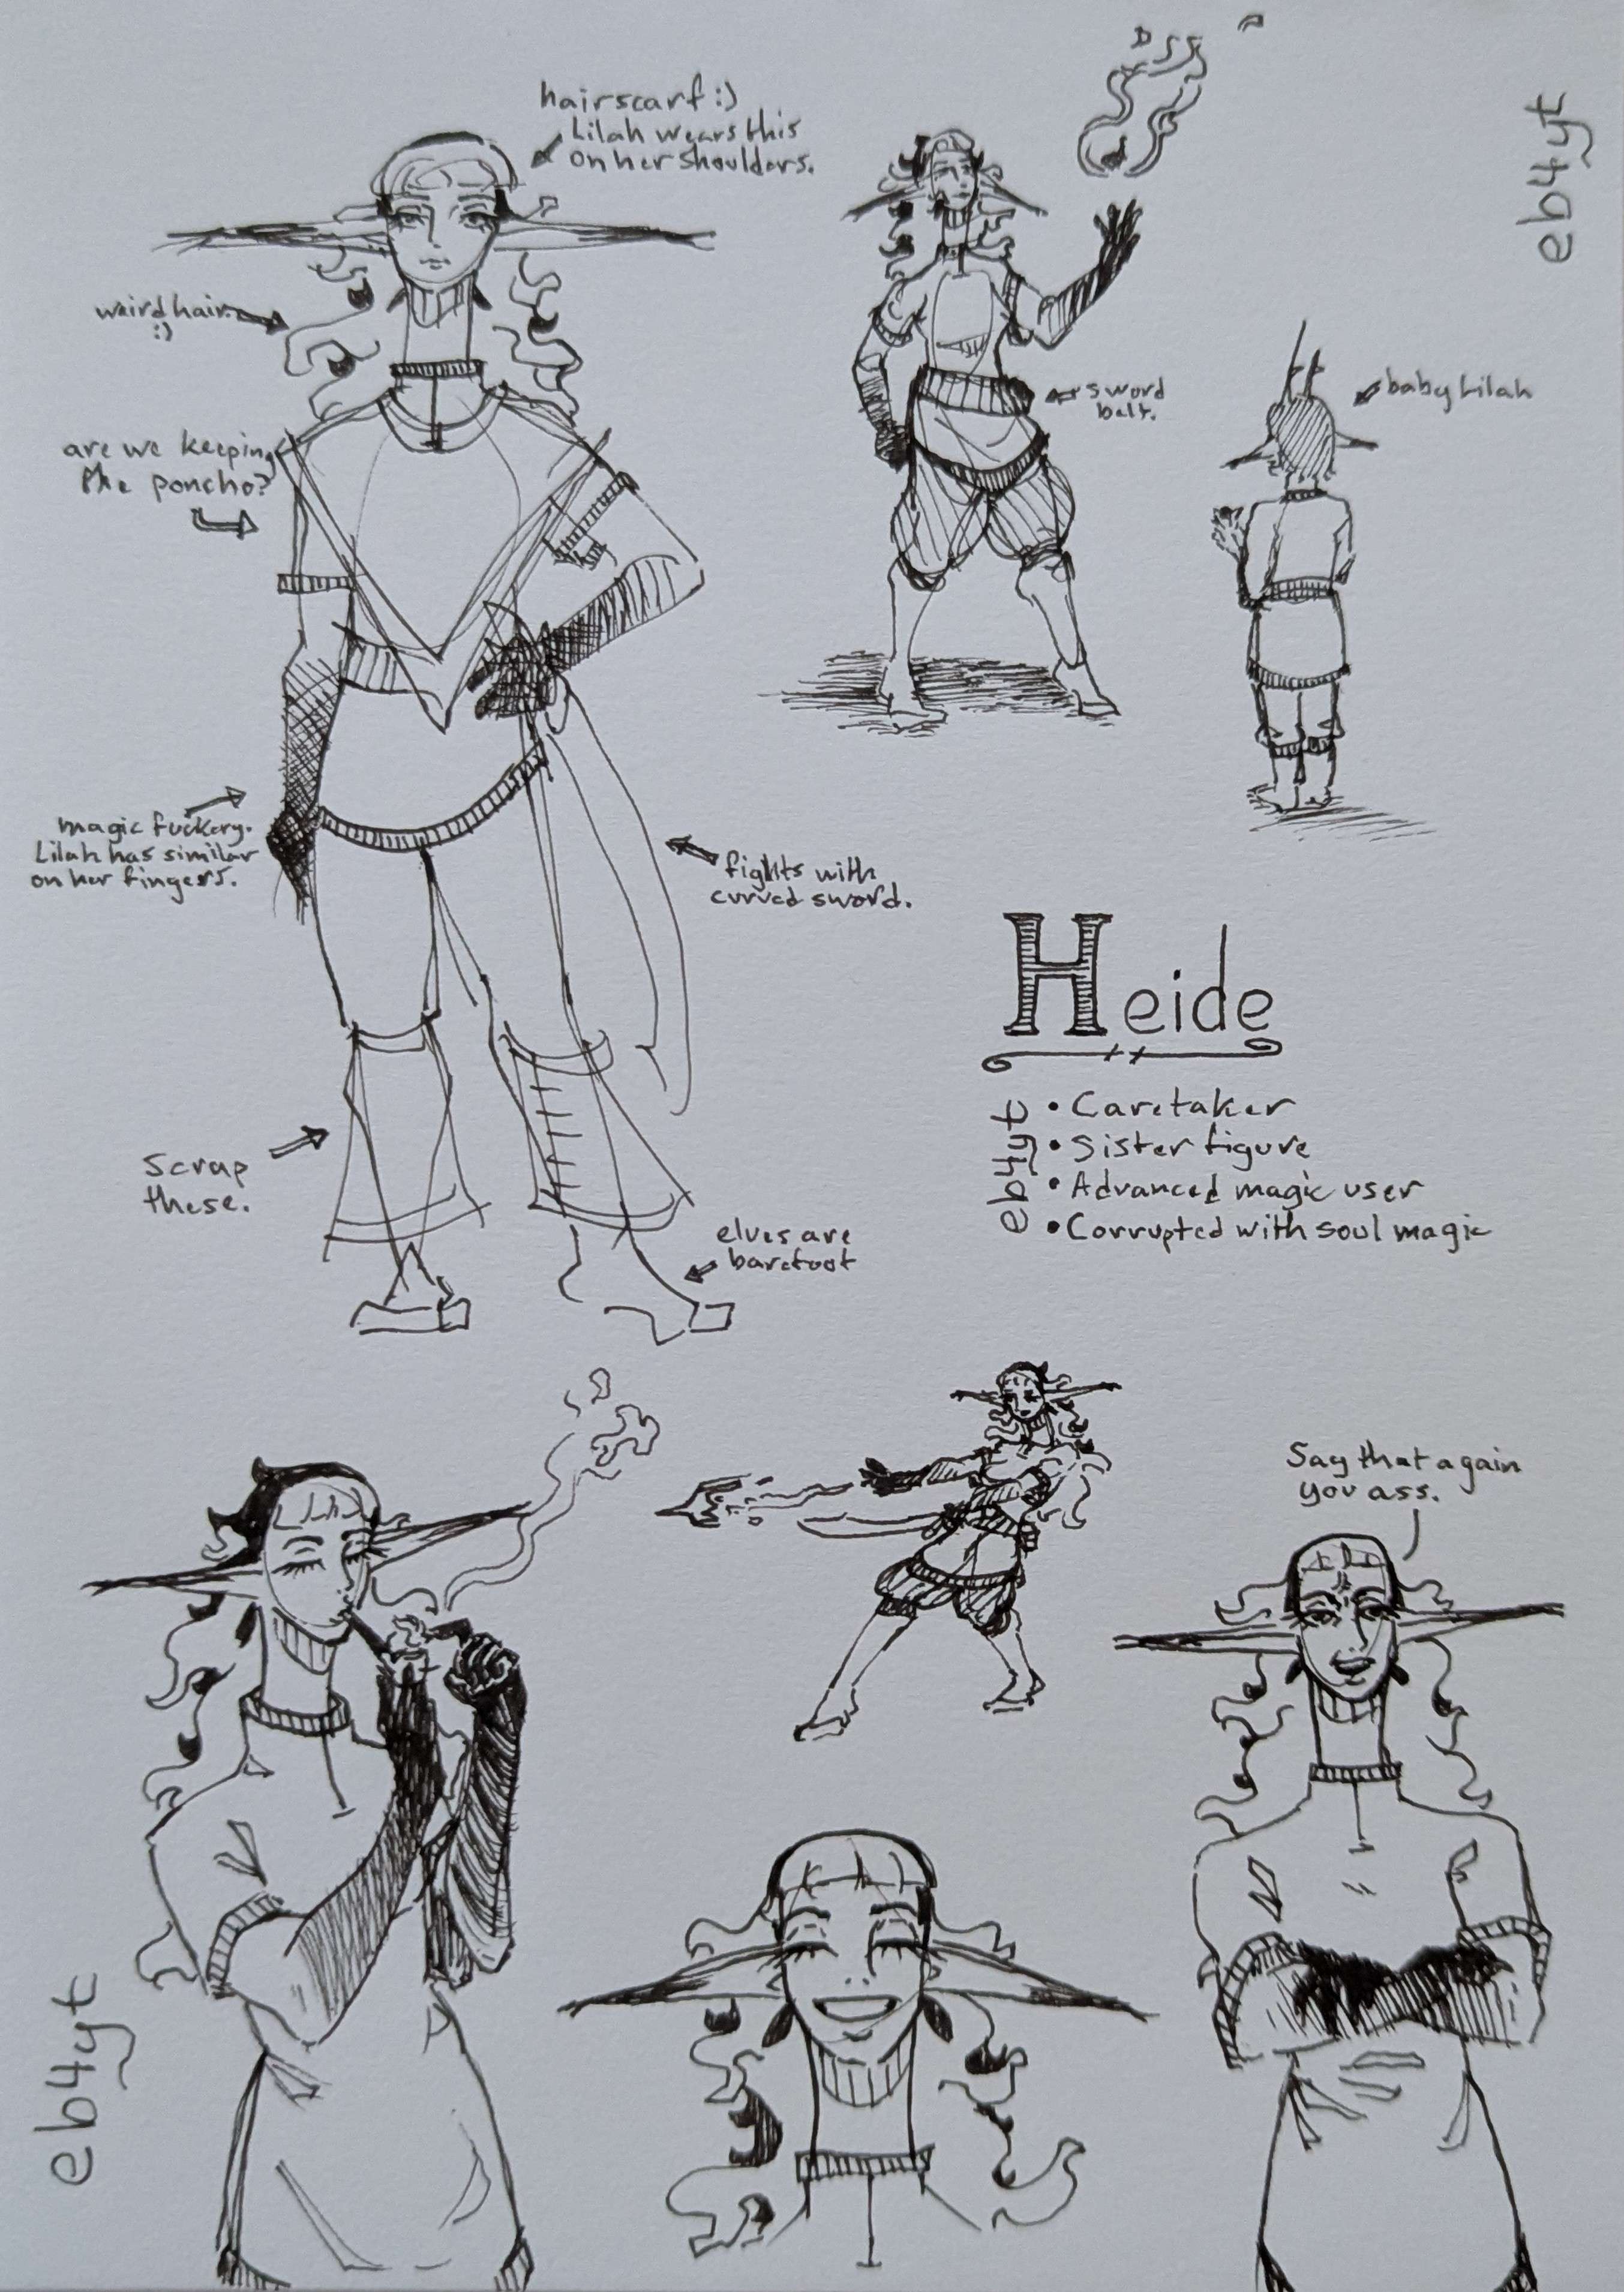 hairscarf :)
Lilah wears this
on her shoulders.
eb4yt
weird hair.
:)
are we keeping
the poncho?
sword
belt.
baby Lilah
magic fuckery.
Lilah has similar
on her fingers.
fights with
curved sword.
Heide
eb4yt
• Caretaker
• Sister figure
• Advanced magic user
• Corrupted with soul magic
Scrap
these.
elves are
barefoot
Say that again
you ass.
eb4yt